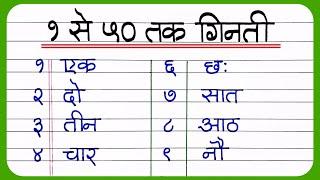 १ से ५० तक गिनती
१ एक ६ छः
२ दो ७ सात
३ तीन ८ आठ
४ चार ९ नौ